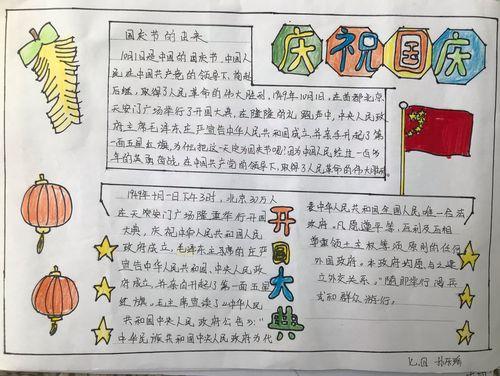 庆祝国庆
国庆节的由来
10月1日是中国的国庆节,中国人
民在中国共产党的领导下,前赴
后继,取得了人民革命的伟大胜利,1949年10月1日,在首都北京
天安门广场举行了开国大典,在隆隆的礼炮声中,中央人民政
府主席毛泽东庄严宣告中华人民共和国成立,并亲手升起了第
一面五星红旗,为什么把这一天定为国庆节呢?因为中国人民经过一百多
年的英勇奋战,在中国共产党的领导下,取得了人民革命的伟大
开国大典
1949年十月一日下午3时,北京30万人
在天安门广场隆重举行开国
大典,庆祝中华人民共和国人民
政府成立,毛泽东主席的庄严
宣告中华人民共和国,中央人民政
府成立,并亲自升起了第一面五星
红旗,毛主席宣读了《中华人民
共和国中央人民政府公告》:"
中华人民共和国中央人民政府为代
表中华人民共和国全国人民唯一合法
政府。凡愿遵平等、互利及互相
尊重领土主权等项原则的任何
外国政府,本政府均愿与之建
立外交关系。"随即举行阅兵
式和群众游行。